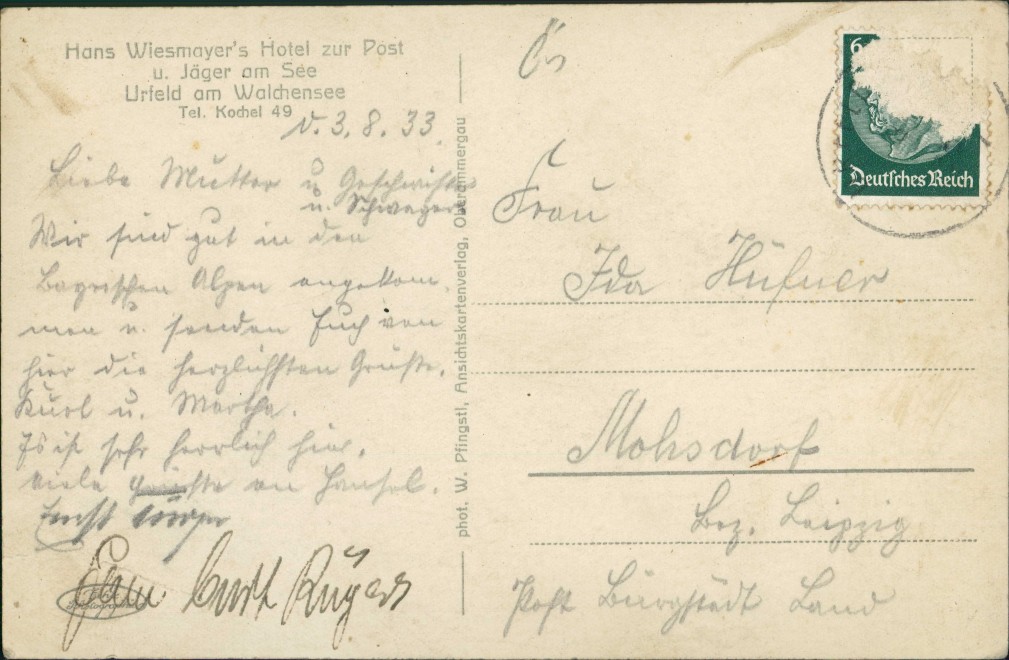 Hans Wiesmayer's Hotel zur Post
u. Jäger am See
Urfeld am Walchensee
Tel. Kochel 49
d. 3. 8. 33.
Liebe Mutter u. Geschwister
u. Schwager
Wir sind gut in den
Bayrischen Alpen angekom-
men u. senden Euch von
hier die herzlichsten Grüße.
Kurt u. Martha.
Es ist sehr herrlich hier.
Viele Grüße an Hansel.
Ernst
Curt Rüger
phot. W. Pfingstl, Ansichtskartenverlag, Oberammergau
6
Deutsches Reich
Frau
Ida Hüfner
Mohsdorf
Bez. Leipzig
Post Burgstädt Land